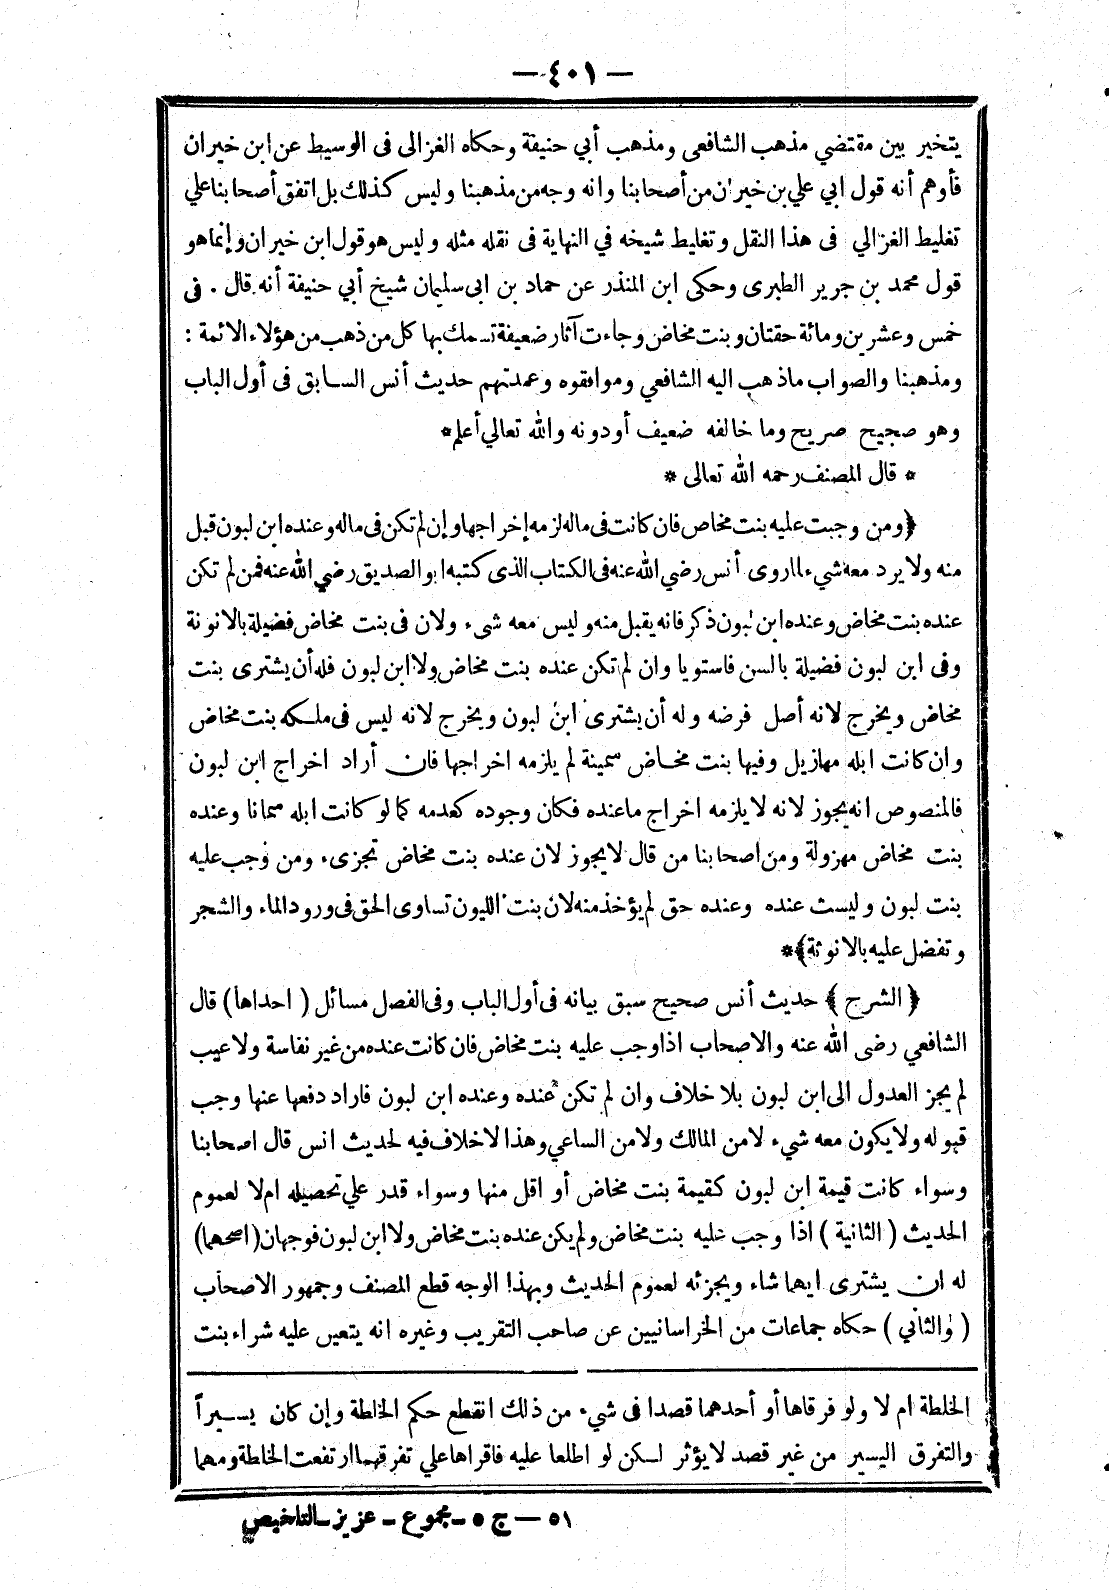 — ٤٠١ —
يتخير بين مقتضي مذهب الشافعى ومذهب أبي حنيفة وحكاه الغزالى فى الوسيط عن ابن خيران
فأوهم أنه قول ابي علي بن خيران من أصحابنا وانه وجه من مذهبنا وليس كذلك بل اتفق أصحابنا علي
تغليط الغزالي فى هذا النقل وتغليط شيخه في النهاية فى نقله مثله وليس هو قول ابن خيران وإنما هو
قول محمد بن جرير الطبرى وحكى ابن المنذر عن حماد بن ابى سليمان شيخ أبي حنيفة أنه قال . فى
خمس وعشرين ومائة حقتان وبنت مخاض وجاءت آثار ضعيفة تسمك بها كل من ذهب من هؤلاء الائمة :
ومذهبنا والصواب ماذهب اليه الشافعي وموافقوه وعمدتهم حديث أنس السابق فى أول الباب
وهو صحيح صريح وما خالفه ضعيف أودونه والله تعالي أعلم*
* قال المصنف رحمه الله تعالى *
﴿ومن وجبت عليه بنت مخاض فان كانت فى ماله لزمه إخراجها وإن لم تكن فى ماله وعنده ابن لبون قبل
منه ولا يرد معه شيء لماروى أنس رضي الله عنه فى الكتاب الذى كتبه ابو الصديق رضي الله عنه فمن لم تكن
عنده بنت مخاض وعنده ابن لبون ذكر فانه يقبل منه وليس معه شىء ولان فى بنت مخاض فضيلة بالانوثة
وفى ابن لبون فضيلة بالسن فاستويا وان لم تكن عنده بنت مخاض ولا ابن لبون فله أن يشترى بنت
مخاض ويخرج لانه أصل فرضه وله أن يشترى ابن لبون ويخرج لانه ليس فى ملكه بنت مخاض
وان كانت ابله مهازيل وفيها بنت مخاض سمينة لم يلزمه اخراجها فان أراد اخراج ابن لبون
فالمنصوص انه يجوز لانه لا يلزمه اخراج ماعنده فكان وجوده كعدمه كما لو كانت ابله سمانا وعنده
بنت مخاض مهزولة ومن اصحابنا من قال لا يجوز لان عنده بنت مخاض تجزىء ومن وجب عليه
بنت لبون وليست عنده وعنده حق لم يؤخذ منه لان بنت اللبون تساوى الحق فى ورود الماء والشجر
وتفضل عليه بالانوثة﴾*
﴿ الشرح ﴾ حديث أنس صحيح سبق بيانه فى أول الباب وفى الفصل مسائل ( احداها ) قال
الشافعي رضى الله عنه والاصحاب اذا وجب عليه بنت مخاض فان كانت عنده من غير نفاسة ولا عيب
لم يجز العدول الى ابن لبون بلا خلاف وان لم تكن عنده وعنده ابن لبون فاراد دفعها عنها وجب
قبوله ولا يكون معه شيء لا من المالك ولا من الساعي وهذا لا خلاف فيه لحديث انس قال اصحابنا
وسواء كانت قيمة ابن لبون كقيمة بنت مخاض أو اقل منها وسواء قدر علي تحصيله ام لا لعموم
الحديث ( الثانية ) اذا وجب عليه بنت مخاض ولم يكن عنده بنت مخاض ولا ابن لبون فوجهان (اصحهما)
له ان يشترى ايهما شاء ويجزئه لعموم الحديث وبهذا الوجه قطع المصنف وجمهور الاصحاب
( والثاني ) حكاه جماعات من الخراسانيين عن صاحب التقريب وغيره انه يتعين عليه شراء بنت
الخلطة ام لا ولو فرقاها أو أحدهما قصدا فى شيء من ذلك انقطع حكم الخلطة وإن كان يسيراً
والتفرق اليسير من غير قصد لا يؤثر لكن لو اطلعا عليه فاقراها علي تفرقهما ارتفعت الخلطة ومهما
٥١ — ج ٥ - مجموع - عزيز - التلخيص